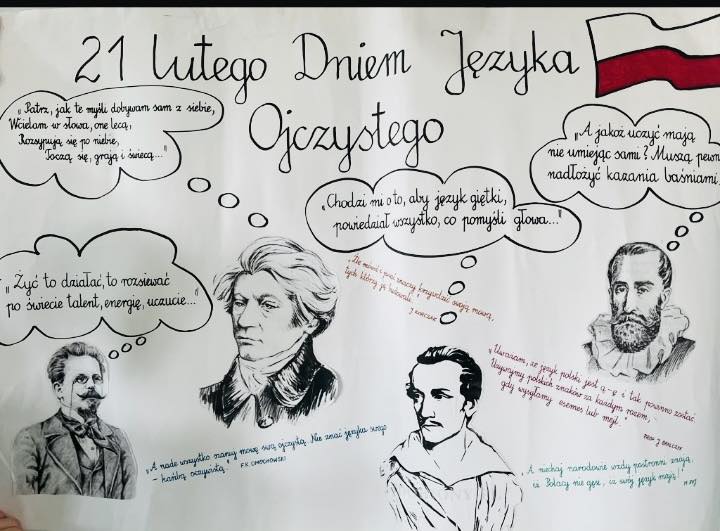 21 Lutego Dniem Języka
Ojczystego
„Patrz, jak te myśli dobywam sam z siebie,
Wcielam w słowa, one lecą,
Rozsypują się po niebie,
Toczą się, grają i świecą..."
„A jakoż uczyć mają
nie umiejąc sami? Muszą pewn
nadłożyć kazania baśniami.
„Chodzi mi o to, aby język giętki,
powiedział wszystko, co pomyśli głowa..."
„Żyć to działać, to rozsiewać
po świecie talent, energię, uczucie..."
„Źle mówić i pisać znaczy krzywdzić swoją mowę,
tych którzy ją
„Uważam, że język polski jest ą-ę i tak powinno zostać
Używajmy polskich znaków za każdym razem,
gdy wysyłamy esemes lub mejl."
PROF. J. BRALCZYK
„A nade wszystko szanuj mowę swą ojczystą. Nie znać języka swego
- hańbą oczywistą."
F.K. DMOCHOWSKI
„A niechaj narodowie wżdy postronni znają,
iż Polacy nie gęsi, iż swój język mają!"